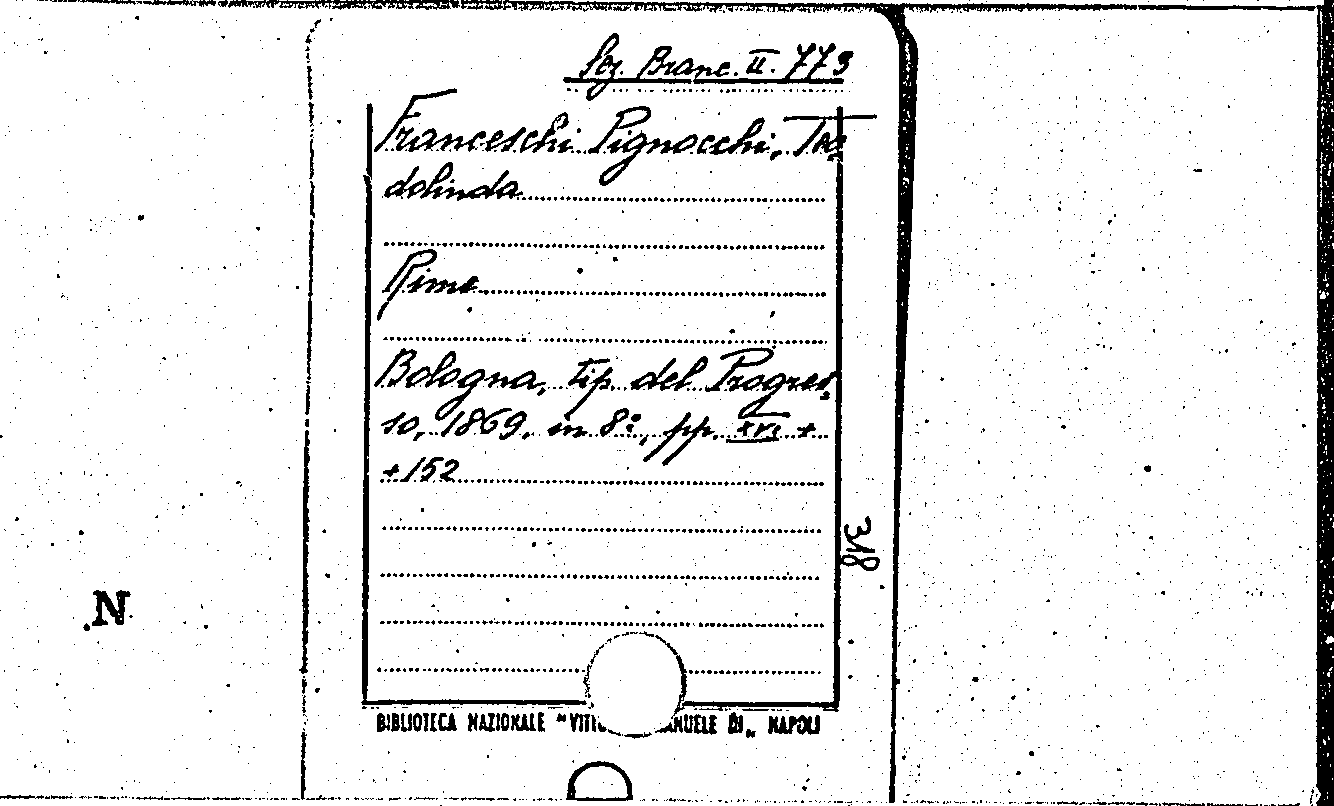 Sez. Branc. II. 773
Franceschi Pignocchi, Teo
dolinda
Rime
Bologna, tip. del Progres
so, 1869, in 8°, pp. XVI +
+152
318
N
BIBLIOTECA NAZIONALE "VITTO ANUELE III„ NAPOLI